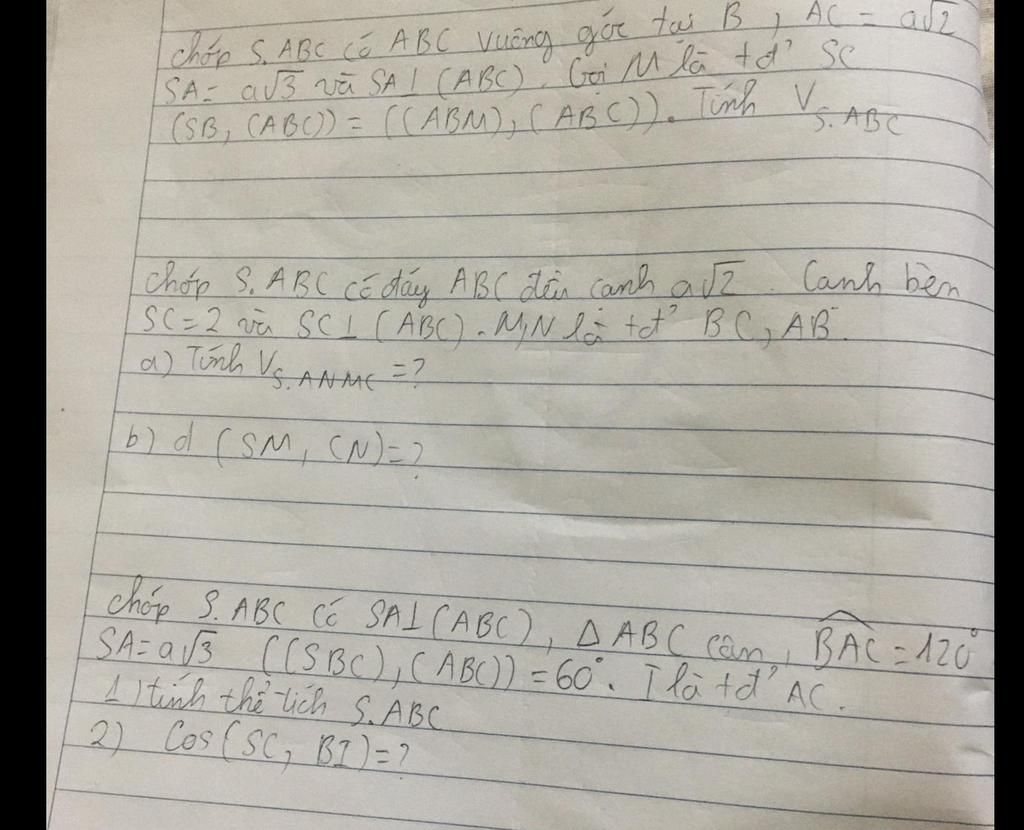 chóp S.ABC có ABC vuông góc tại B, AC = a√2
SA = a√3 và SA ⊥ (ABC). Gọi M là tđ' SC
(SB, (ABC)) = ((ABM), (ABC)). Tính V_{S.ABC}
chóp S.ABC có đáy ABC đều cạnh a√2. Cạnh bên
SC = 2 và SC ⊥ (ABC). M,N là tđ' BC, AB.
a) Tính V_{S.ANMC} = ?
b) d (SM, CN) = ?
chóp S.ABC có SA ⊥ (ABC), Δ ABC cân, \widehat{BAC} = 120°
SA = a√3 ((SBC), (ABC)) = 60°. I là tđ' AC.
1) tính thể tích S.ABC
2) Cos (SC, BI) = ?